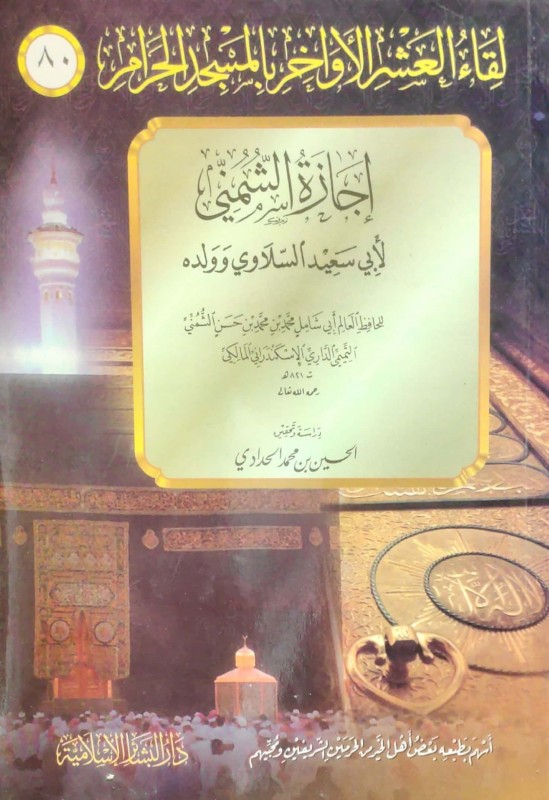 لِقَاءُ العَشْرِ الأَوَاخِرِ بِالمَسْجِدِ الحَرَامِ
٨٠
إِجَازَةُ الشُّمُنِّي
لأَبِي سَعِيد السَّلَاوِي وَوَلَدِه
لِلحَافِظِ العَالِمِ أَبِي شَامِل مُحَمَّد بْن مُحَمَّد بْن حَسَن الشُّمُنِّي
التَّمِيمِي الدَّارِي الإِسْكَنْدَرَانِي المَالِكِي
ت ٨٢١ هـ
رحمه الله تعالى
دِرَاسَة وَتَحْقِيق
الحسين بن محمد الحدادي
أَسْهَمَ بِطَبْعِهِ بَعْضُ أَهْلِ الخَيْرِ مِنَ الحَرَمَيْنِ الشَّرِيفَيْنِ وَمُحِبِّيهِم
دَارُ البَشَائِرِ الإِسْلَامِيَّة